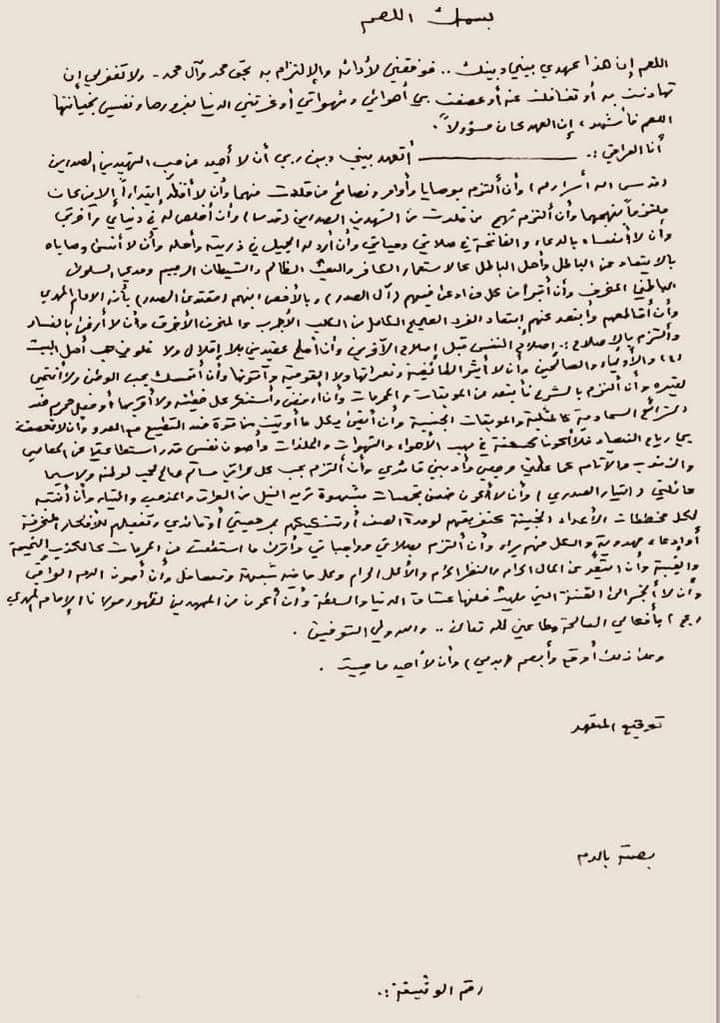 بسمك اللهم
اللهم إن هذا عهدي بيني وبينك .. فوفقني لأدائه والإلتزام به بحق محمد وآل محمد - ولا تغفر لي إن
تهاونت به أو تغافلت عنه أو عصفت بي أهوائي وشهواتي أو غرتني الدنيا بغرورها ونفسي بخيانتها
اللهم فأشهد ، إن العهد كان مسؤولاً .
أنا العراقي :. ـــــــــ أتعهد بيني وبين ربي أن لا أحيد عن حب الشهيدين الصدرين
(قدس الله أسرارهم) وأن ألتزم بوصايا وأوامر ونصائح من قلدت منهما وأن لا أقلد إبتداءاً إلا من كان
ملتزماً بنهجهما وأن ألتزم نهج من قلدت من الشهيدين الصدرين (قدسا) وأن أخلص له في دنياي وآخرتي
وأن لا أنساه بالدعاء والفاتحة في صلاتي وحياتي وأن أرد له الجميل في ذريته وأهله وأن لا أنسى وصاياه
بالابتعاد عن الباطل وأهل الباطل كالاستعمار الكافر والبعث الظالم والشيطان الرجيم ومدعي السلوك
الباطني المنحرف وأن أتبرأ من كل من ادعى فيهم (آل الصدر) وبالأخص ابنهم (مقتدى الصدر) بأنه الامام المهدي
وأن أقاطعهم وأبتعد عنهم ابتعاد الفرد الصحيح الكامل من الكلب الأجرب والمجنون الأخرق وأن لا أرضى بالفساد
وألتزم بالإصلاح :. إصلاح النفس قبل إصلاح الآخرين وأن أصلح عقيدتي بلا إقلال ولا غلو في حب أهل البيت
(ع) والأولياء والصالحين وأن لا أثير الطائفية ونعراتها ولا القومية وأتونها وأن أتمسك بحب الوطن ولا أنتمي
لغيره وأن ألتزم بالشرع فأبتعد عن الموبقات والمحرمات وأن أرفض وأستنكر كل خطيئة ولا أقربها أو فعل محرم ضد
الشرائع السماوية كالمثلية والموبقات الجنسية وأن أقف بكل ما أوتيت من قوة ضد التطبيع مع العدو وأن لا تعصف
بي رياح الفساد فلا أكون كسعفة في مهب الأهواء والشهوات والملذات وأصون نفسي قدر استطاعتي عن المعاصي
والذنوب والآثام كما علمني مرجعي وأدبني قائدي وأن ألتزم بحب كل عراقي مسالم صالح محب لوطنه ولا سيما
عائلتي (التيار الصدري) وأن لا أكون ضمن تجمعات مشبوهة تريد النيل من العراق والمذهب والتيار وأن أنتبه
لكل مخططات الأعداء الخبيثة كتفريقهم لوحدة الصف أو تشكيكهم بمرجعيتي أو قائدي وتفعيلهم للأفكار المنحرفة
أو إدعاء مهدوية والكل منهم براء وأن ألتزم بصلاتي وواجباتي وأترك ما استطعت من المحرمات كالكذب والنميمة
والغيبة وأن أبتعد عن المال الحرام والنظر الحرام والأكل الحرام وكل ما فيه شبهة وتساهل وأن أصون الدم العراقي
وأن لا أنجر الى الفتنة التي يلهث خلفها عشاق الدنيا والسلطة وأن أكون من الممهدين لظهور مولانا الإمام المهدي
(عج) بأفعالي الصالحة وطاعتي لله تعالى .. والله ولي التوفيق .
وعلى ذلك أوقع وأبصم (بدمي) وأن لا أحيد ما حييت .
توقيع المتعهد
بصمة بالدم
رقم الوثيقة :.